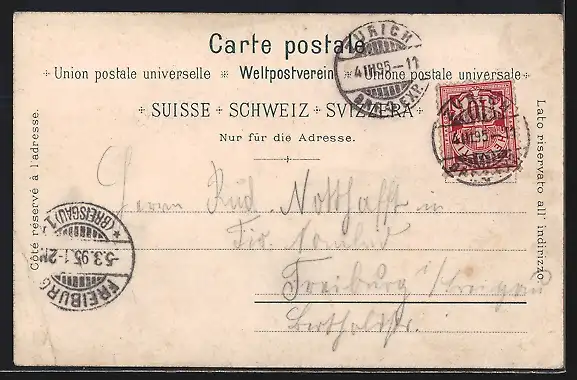 Carte postale.
Union postale universelle ※ Weltpostverein ※ Unione postale universale
SUISSE SCHWEIZ SVIZZERA
Nur für die Adresse.
Côté réservé à l'adresse.
Lato riservato all' indirizzo
ZÜRICH
4 III 95 – 11
BRF. EXP.
4 III 95 – 11
FREIBURG
5.3.95.1-2N
(BREISGAU) 1
Herrn Rud. Notthafft in
Freiburg i/Breisgau
Bertholdstr.